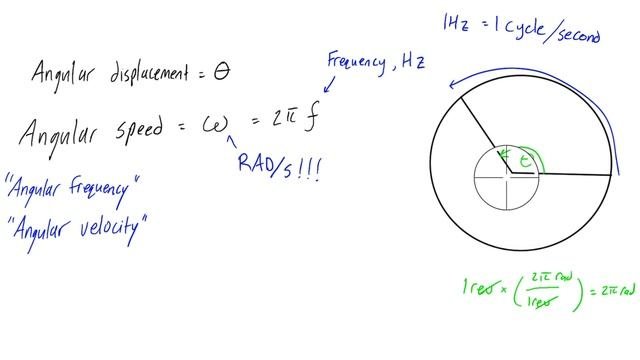 1Hz = 1 cycle/second
Frequency, Hz
Angular displacement = θ
Angular speed = ω = 2π f
RAD/s!!!
"Angular frequency"
"Angular velocity"
θ
1 rev × (2π rad / 1 rev) = 2π rad